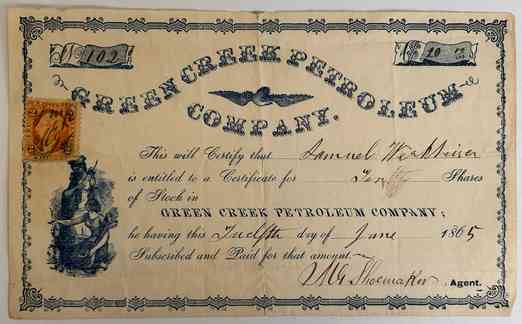 102
GREEN CREEK PETROLEUM
COMPANY.
This will Certify that Samuel
is entitled to a Certificate for Shares
of Stock in
GREEN CREEK PETROLEUM COMPANY;
he having this Twelfth day of June 1865
Subscribed and Paid for that amount.
Shoemaker Agent.